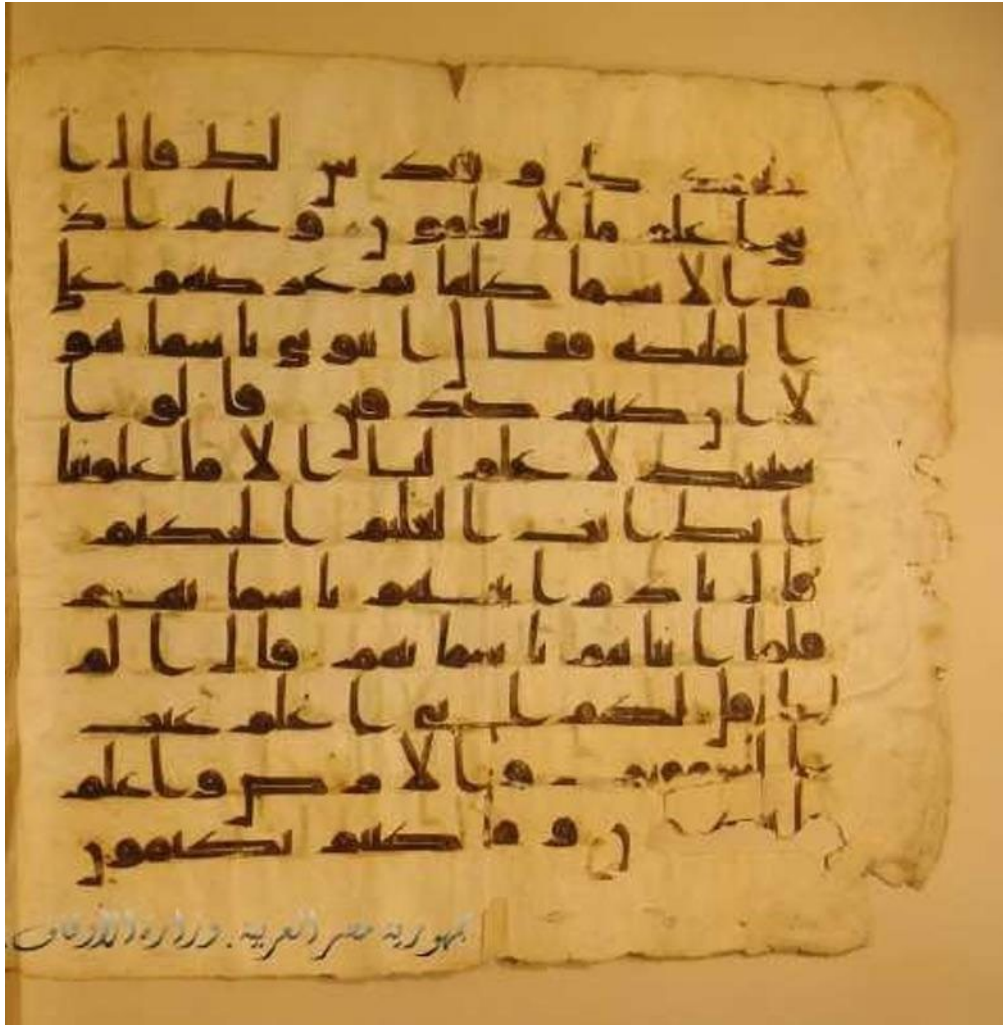 بحمدك و نقدس لك قال ا
ني اعلم ما لا تعلمون و علم اد
م الاسما كلها ثم عرضهم علي
الملئكه فقال انبوني باسما هو
لا ان كنتم صدقين قالوا
سبحنك لا علم لنا الا ما علمتنا
انك انت العليم الحكيم
قال يادم انبهم باسمايهم
فلما انباهم باسمايهم قال الم
اقل لكم اني اعلم غيب
السموت و الارض و اعلم
ما تبدون و ما كنتم تكتمون
جمهورية مصر العربية . وزارة الأوقاف .